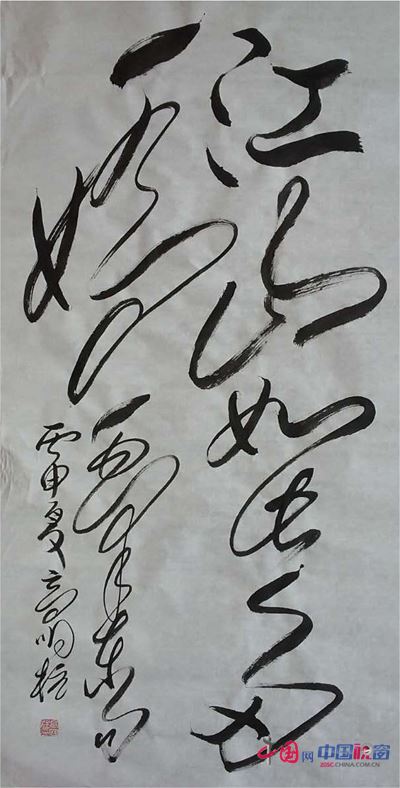 江山如此多
娇 东句
丙申夏高明
中国网 中国视窗
ZGSC.CHINA.COM.CN